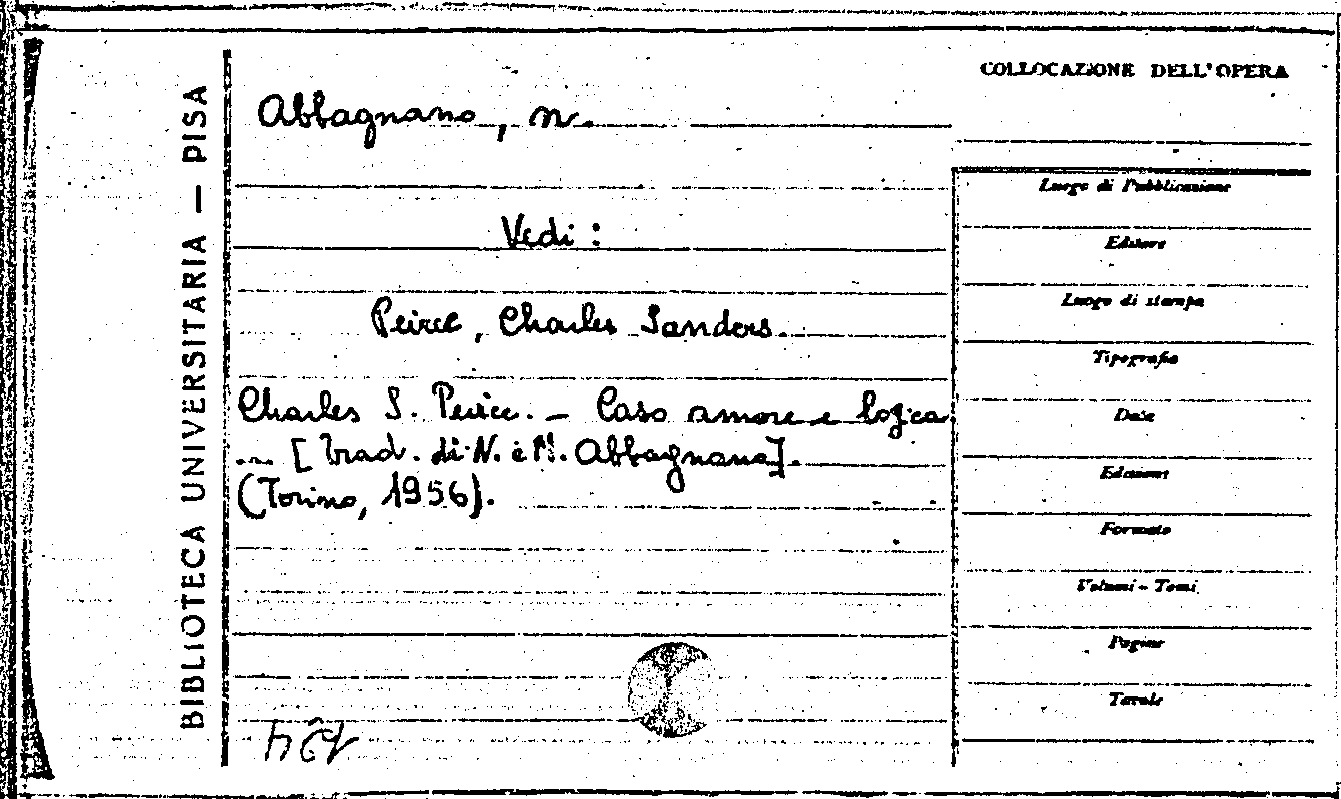 BIBLIOTECA UNIVERSITARIA — PISA
Abbagnano, N.
Vedi :
Peirce, Charles Sanders.
Charles S. Peirce. — Caso amore e logica
... [Trad. di N. e M. Abbagnano].
(Torino, 1956).
COLLOCAZIONE DELL'OPERA
Luogo di Pubblicazione
Editore
Luogo di stampa
Tipografia
Data
Edizioni
Formato
Volumi - Tomi
Pagine
Tavole